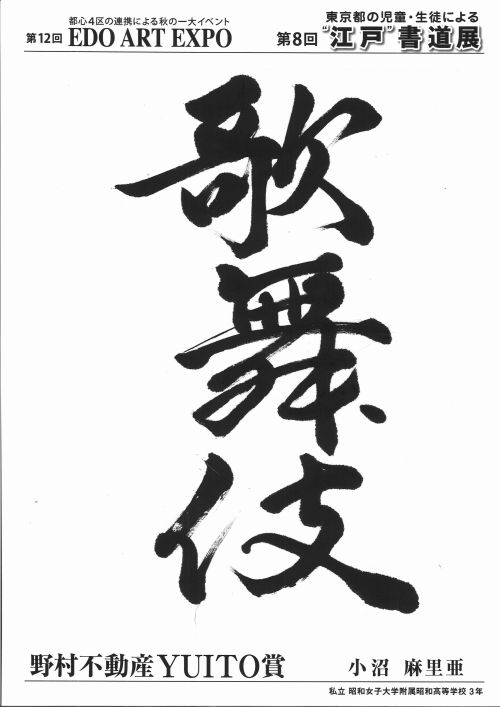 都心4区の連携による秋の一大イベント
第12回 EDO ART EXPO
東京都の児童・生徒による
第8回 “江戸”書道展
歌舞伎
野村不動産YUITO賞
小沼 麻里亜
私立 昭和女子大学附属昭和高等学校 3年